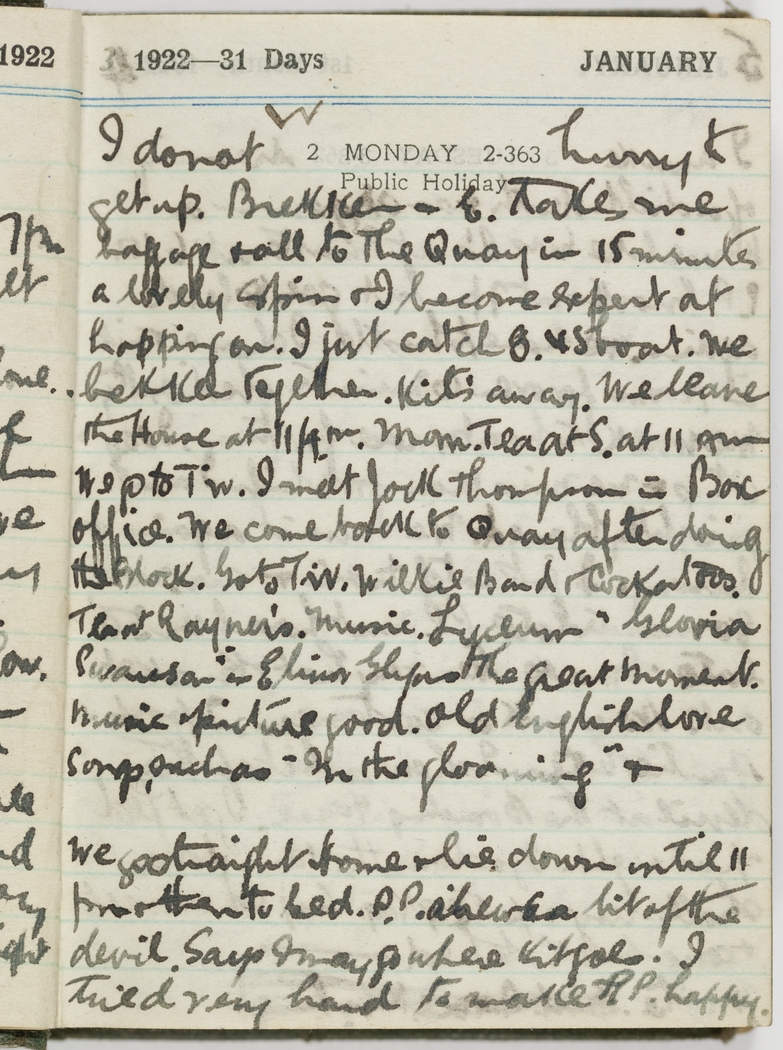 1922
1922—31 Days JANUARY
I do not 2 MONDAY 2-363 hurry to
Public Holiday
get up. Brekker – E. takes me
baggage & all to the Quay in 15 minutes
a lovely spin & I become expert at
hopping on. I just catch 8.45 boat. We
bekker together. Kit's away. We leave
the House at 11 Morn. Tea at S. at 11 am
We go to Tiv. I met Jock Thompson in Box
office. We come back to Quay after doing
the Block. Go to Tiv. Wilkie Bard & Cockatoos.
Tea at Rayner's. Music. Lyceum "Gloria
Swanson" in Elinor Glyns the great Moment.
Music & picture good. Old English love
songs, such as "In the gloaming" &
We go straight home & lie down until 11
pm & then to bed. P.P. shews a bit of the
devil. Says I may go where Kit goes. I
tried very hard to make P.P. happy.